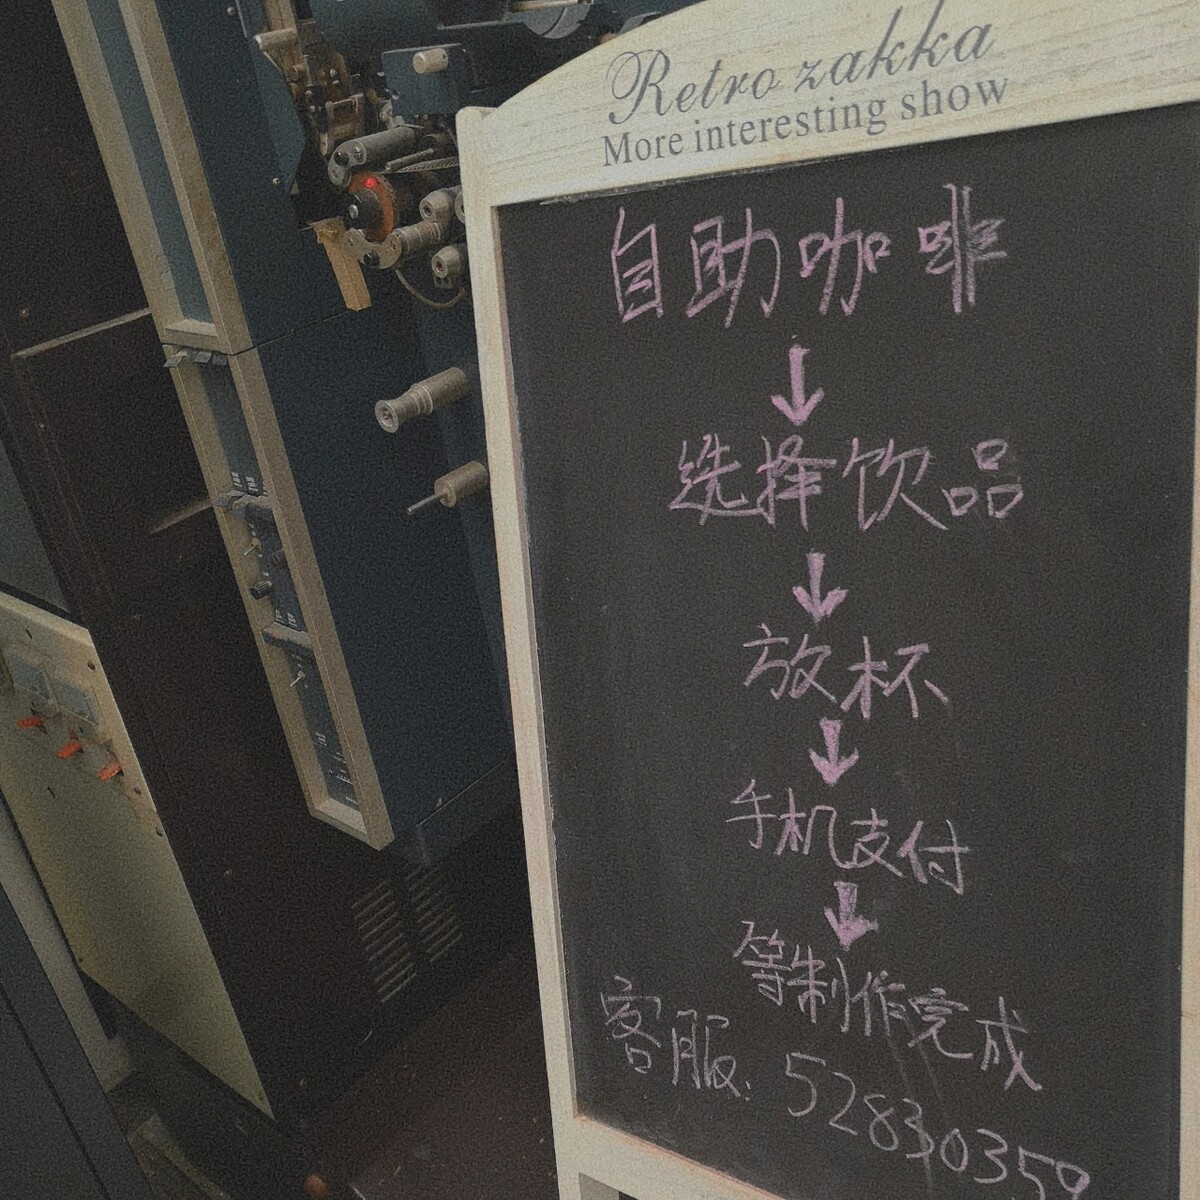 Retro zakka
More interesting show
自助咖啡
↓
选择饮品
↓
放杯
↓
手机支付
↓
等制作完成
客服: 52830359